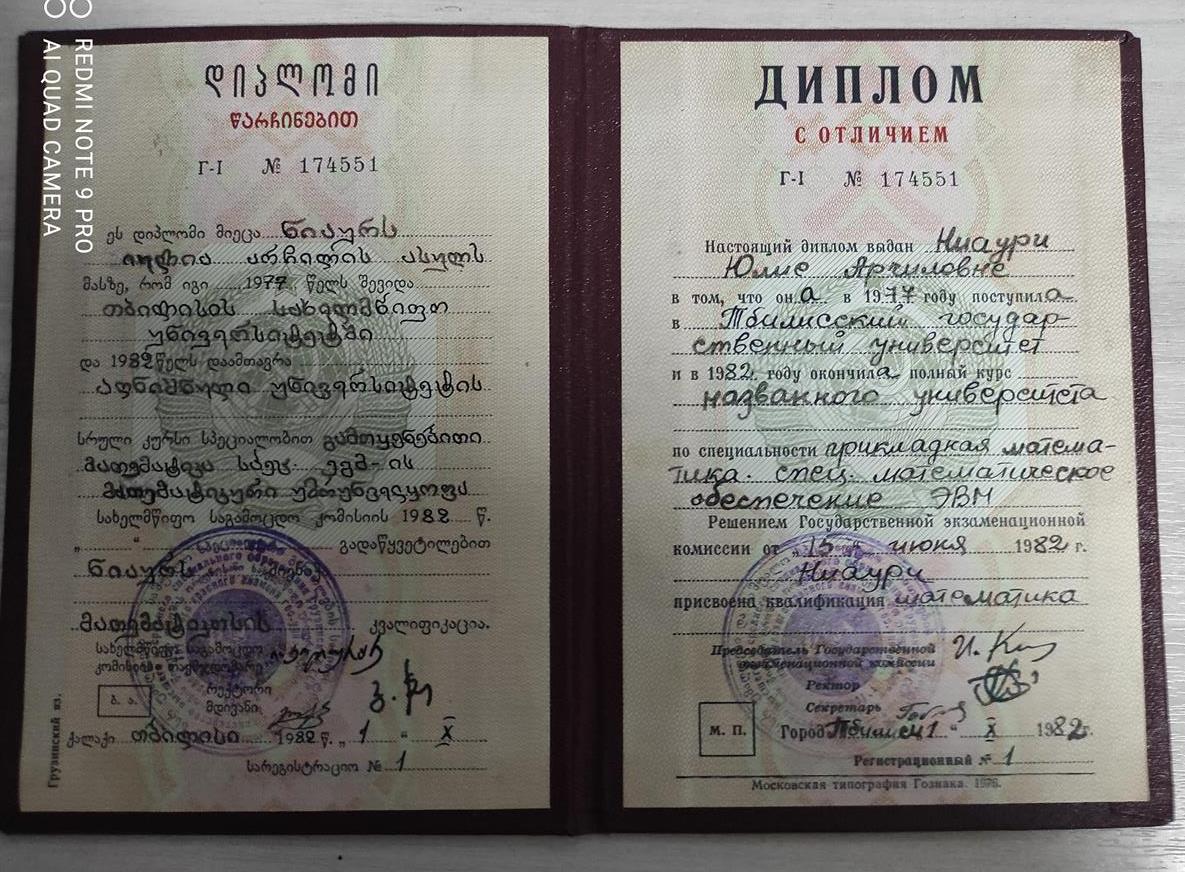 REDMI NOTE 9 PRO
AI QUAD CAMERA
დიპლომი
წარჩინებით
Г-I № 174551
ეს დიპლომი მიეცა ნიაურს
იულია არჩილის ასულს
მასზე, რომ იგი 1977 წელს შევიდა
თბილისის სახელმწიფო
უნივერსიტეტში
და 1982 წელს დაამთავრა
აღნიშნული უნივერსიტეტის
სრული კურსი სპეციალობით გამოყენებითი
მათემატიკა სპეც. ეგმ-ის
მათემატიკური უზრუნველყოფა
სახელმწიფო საგამოცდო კომისიის 1982 წ.
„ “ გადაწყვეტილებით
ნიაურს
მათემატიკოსის კვალიფიკაცია.
სახელმწიფო საგამოცდო
კომისიის თავმჯდომარე
რექტორი
მდივანი
ბ. ა.
ქალაქი თბილისი 1982 წ. „ 1 “ X
სარეგისტრაციო № 1
Грузинский яз.
ДИПЛОМ
С ОТЛИЧИЕМ
Г-I № 174551
Настоящий диплом выдан Ниаури
Юлие Арчиловне
в том, что она в 1977 году поступила
в Тбилисский государ-
ственный университет
и в 1982 году окончила полный курс
названного университета
по специальности прикладная матема-
тика. спец. математическое
обеспечение ЭВМ
Решением Государственной экзаменационной
комиссии от „15“ июня 1982 г.
Ниаури
присвоена квалификация математика
Председатель Государственной
экзаменационной комиссии
Ректор
Секретарь
М. П.
Город Тбилиси 1 “ X 1982 г.
Регистрационный № 1
Московская типография Гознака. 1976.